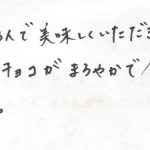 んで美味しくいただき
チョコがまろやかで
。